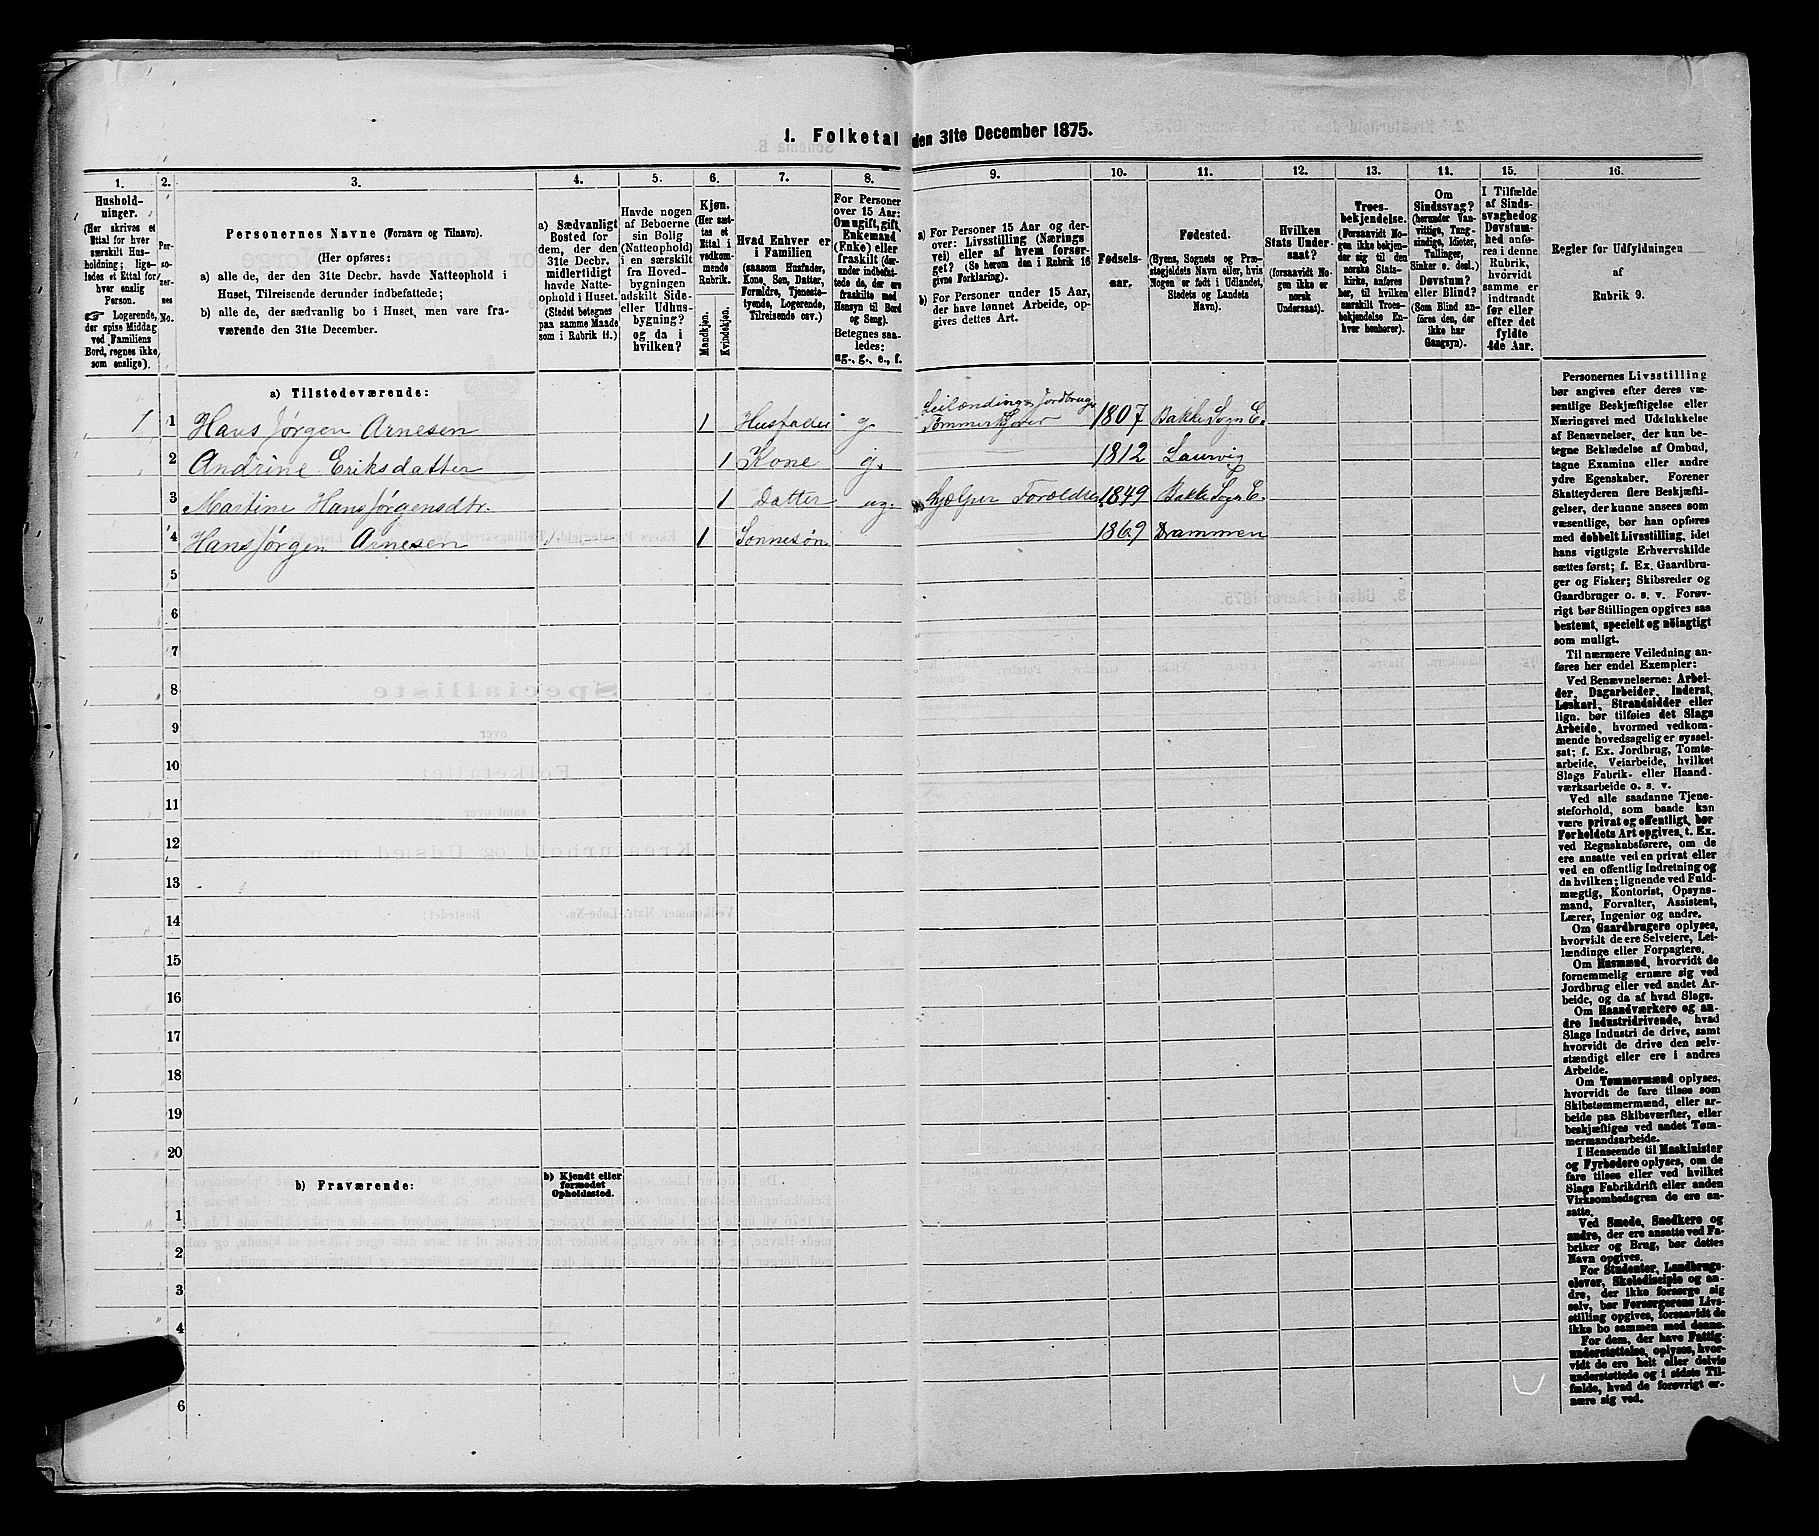 1. Folketal den 31te December 1875.
1. 2. 3. 4. 5. 6. 7. 8. 9. 10. 11. 12. 13. 14. 15. 16.
Hushold-
ninger.
(Her skrives et
Ettal for hver
særskilt Hus-
holdning; lige-
ledes et Ettal for
hver enslig
Person.
☞ Logerende,
der spise Middag
ved Familiens
Bord, regnes ikke
som enslige).
Per-
so-
ner-
nes
No.
Personernes Navne (Fornavn og Tilnavn).
(Her opføres:
a) alle de, der den 31te Decbr. havde Natteophold i
Huset, Tilreisende derunder indbefattede;
b) alle de, der sædvanlig bo i Huset, men vare fra-
værende den 31te December.
a) Sædvanligt
Bosted for
dem, der den
31te Decbr.
midlertidigt
havde Natte-
ophold i Huset.
(Stedet betegnes
paa samme Maade
som i Rubrik 11.)
Havde nogen
af Beboerne
sin Bolig
(Natteophold)
i en særskilt
fra Hoved-
bygningen
adskilt Side-
eller Udhus-
bygning?
og da i
hvilken?
Kjøn.
(Her sæt-
tes et
Ettal i
vedkom-
mende
Rubrik.
Mandkjøn.
Kvindekjøn.
Hvad Enhver er
i Familien
(saasom Husfader,
Kone, Søn, Datter,
Forældre, Tjeneste-
tyende, Logerende,
Tilreisende osv.)
For Personer
over 15 Aar:
Om ugift, gift,
Enkemand
(Enke) eller
fraskilt (der-
under indbefat-
tede de, der ere
fraskilte med
Hensyn til Bord
og Seng).
Betegnes saa-
ledes:
ug., g., e., f.
a) For Personer 15 Aar og der-
over: Livsstilling (Nærings
vei) eller af hvem forsør-
get? (Se herom den i Rubrik 16
givne Forklaring).
b) For Personer under 15 Aar,
der have lønnet Arbeide, op-
gives dettes Art.
Fødsels-
aar.
Fødested.
(Byens, Sognets og Præ-
stegjeldets Navn eller, hvis
Nogen er født i Udlandet,
Stedets og Landets
Navn).
Hvilken
Stats Under-
saat?
(forsaavidt No-
gen ikke er
norsk
Undersaat).
Troes-
bekjendelse.
(Forsaavidt No-
gen ikke bekjen-
der sig til den
norske Stats-
kirke, anføres
her, til hvilken
særskilt Troes-
bekjendelse En-
hver henhører).
Om
Sindssvag?
(herunder Van-
vittige, Tung-
sindige, Idioter,
Tullinger,
Sinker o. desl.)
Døvstum?
eller Blind?
(Som Blind an-
føres den, der
ikke har
Gangsyn).
I Tilfælde
af Sinds-
svaghed og
Døvstum-
hed anfø-
res i denne
Rubrik,
hvorvidt
samme er
indtraadt
før eller
efter det
fyldte
4de Aar.
Regler for Udfyldningen
af
Rubrik 9.
a) Tilstedeværende:
1 1 Hans Jørgen Arnesen 1 Husfader g. Leilænding, Jordbruger Tømmerkjører 1807 Bakke Sogn E.
2 Andrine Eriksdatter 1 Kone g. 1812 Laurvig
3 Martine Hans Jørgensdtr. 1 Datter ug. hjælper Forældre 1849 Bakke Sogn E.
4 Hans Jørgen Arnesen 1 Sønnesøn 1869 Drammen
5
6
7
8
9
10
11
12
13
14
15
16
17
18
19
20
b) Fraværende:
b) Kjendt eller
formodet
Opholdssted.
1
2
3
4
6
Personernes Livsstilling
bør angives efter deres væ-
sentlige Beskjæftigelse eller
Næringsvei med Udelukkelse
af Benævnelser, der kun be-
tegne Beklædelse af Ombud,
tagne Examina eller andre
ydre Egenskaber. Forener
Skatteyderen flere Beskjæfti-
gelser, der kunne ansees som
væsentlige, bør han opføres
med dobbelt Livsstilling, idet
hans vigtigste Erhvervskilde
sættes først; f. Ex. Gaardbru-
ger og Fisker; Skibsreder og
Gaardbruger o. s. v. Forøv-
rigt bør Stillingen opgives saa
bestemt, specielt og nøiagtigt
som muligt.
Til nærmere Veiledning an-
føres her endel Exempler:
Ved Benævnelserne: Arbei-
der, Dagarbeider, Inderst,
Løskarl, Strandsidder eller
lign. bør tilføies det Slags
Arbeide, hvormed vedkom-
mende hovedsagelig er syssel-
sat; f. Ex. Jordbrug, Tomte-
arbeide, Veiarbeide, hvilket
Slags Fabrik- eller Haand-
værksarbeide o. s. v.
Ved alle saadanne Tjene-
steforhold, som baade kan
være privat og offentligt, bør
Forholdets Art opgives, t. Ex.
ved Regnskabsførere, om de
ere ansatte ved en privat eller
ved en offentlig Indretning og
da hvilken; lignende ved Fuld-
mægtig, Kontorist, Opsyns-
mand, Forvalter, Assistent,
Lærer, Ingeniør og andre.
Om Gaardbrugere oplyses,
hvorvidt de ere Selveiere, Lei-
lændinge eller Forpagtere.
Om Husmænd, hvorvidt de
fornemmelig ernære sig ved
Jordbrug eller ved andet Ar-
beide, og da af hvad Slags.
Om Haandværkere og an-
dre Industridrivende, hvad
Slags Industri de drive, samt
hvorvidt de drive den selv-
stændigt eller ere i andres
Arbeide.
Om Tømmermænd oplyses,
hvorvidt de fare tilsøs som
Skibstømmermænd, eller ar-
beide paa Skibsværfter, eller
beskjæftiges ved andet Tøm-
mermandsarbeide.
I Henseende til Maskinister
og Fyrbødere oplyses, om de
fare tilsøs eller ved hvilket
Slags Fabrikdrift eller anden
Virksomhedsgren de ere an-
satte.
Ved Smede, Snedkere og
andre, der ere ansatte ved Fa-
briker og Brug, bør dettes
Navn opgives.
For Studenter, Landbrugs-
elever, Skoledisciple og an-
dre, der ikke forsørge sig
selv, bør Forsørgerens Livs-
stilling opgives, forsaavidt de
ikke bo sammen med denne.
For dem, der have Fattig-
understøttelse, oplyses, hvor-
vidt de ere helt eller delvis
understøttede og i sidste Til-
fælde, hvad de forøvrigt er-
nære sig ved.